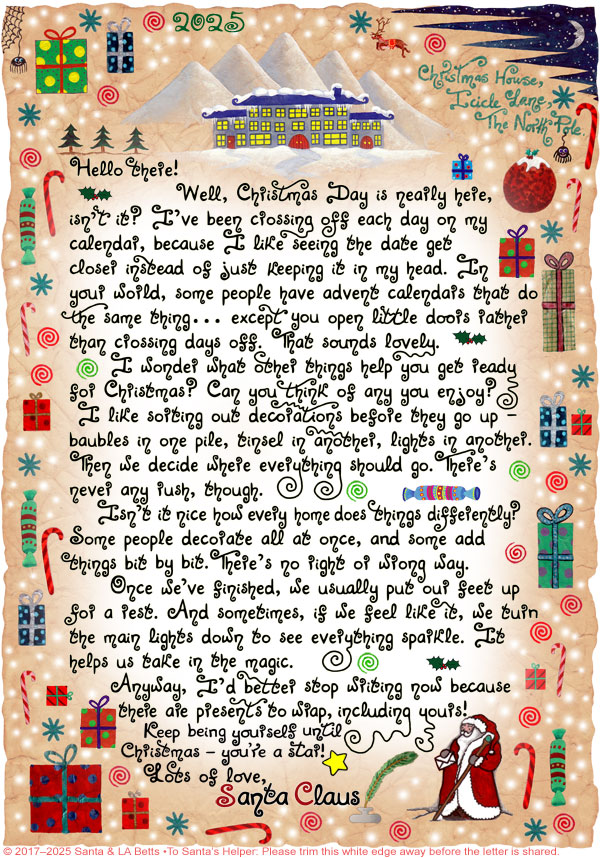 2025
Christmas House,
Icicle Lane,
The North Pole.
Hello there!
Well, Christmas Day is nearly here,
isn't it? I've been crossing off each day on my
calendar, because I like seeing the date get
closer instead of just keeping it in my head. In
your world, some people have advent calendars that do
the same thing... except you open little doors rather
than crossing days off. That sounds lovely.
I wonder what other things help you get ready
for Christmas? Can you think of any you enjoy?
I like sorting out decorations before they go up –
baubles in one pile, tinsel in another, lights in another.
Then we decide where everything should go. There's
never any rush, though.
Isn't it nice how every home does things differently?
Some people decorate all at once, and some add
things bit by bit. There's no right or wrong way.
Once we've finished, we usually put our feet up
for a rest. And sometimes, if we feel like it, we turn
the main lights down to see everything sparkle. It
helps us take in the magic.
Anyway, I'd better stop writing now because
there are presents to wrap, including yours!
Keep being yourself until
Christmas – you're a star!
Lots of love,
Santa Claus
© 2017–2025 Santa & LA Betts •To Santa's Helper: Please trim this white edge away before the letter is shared.